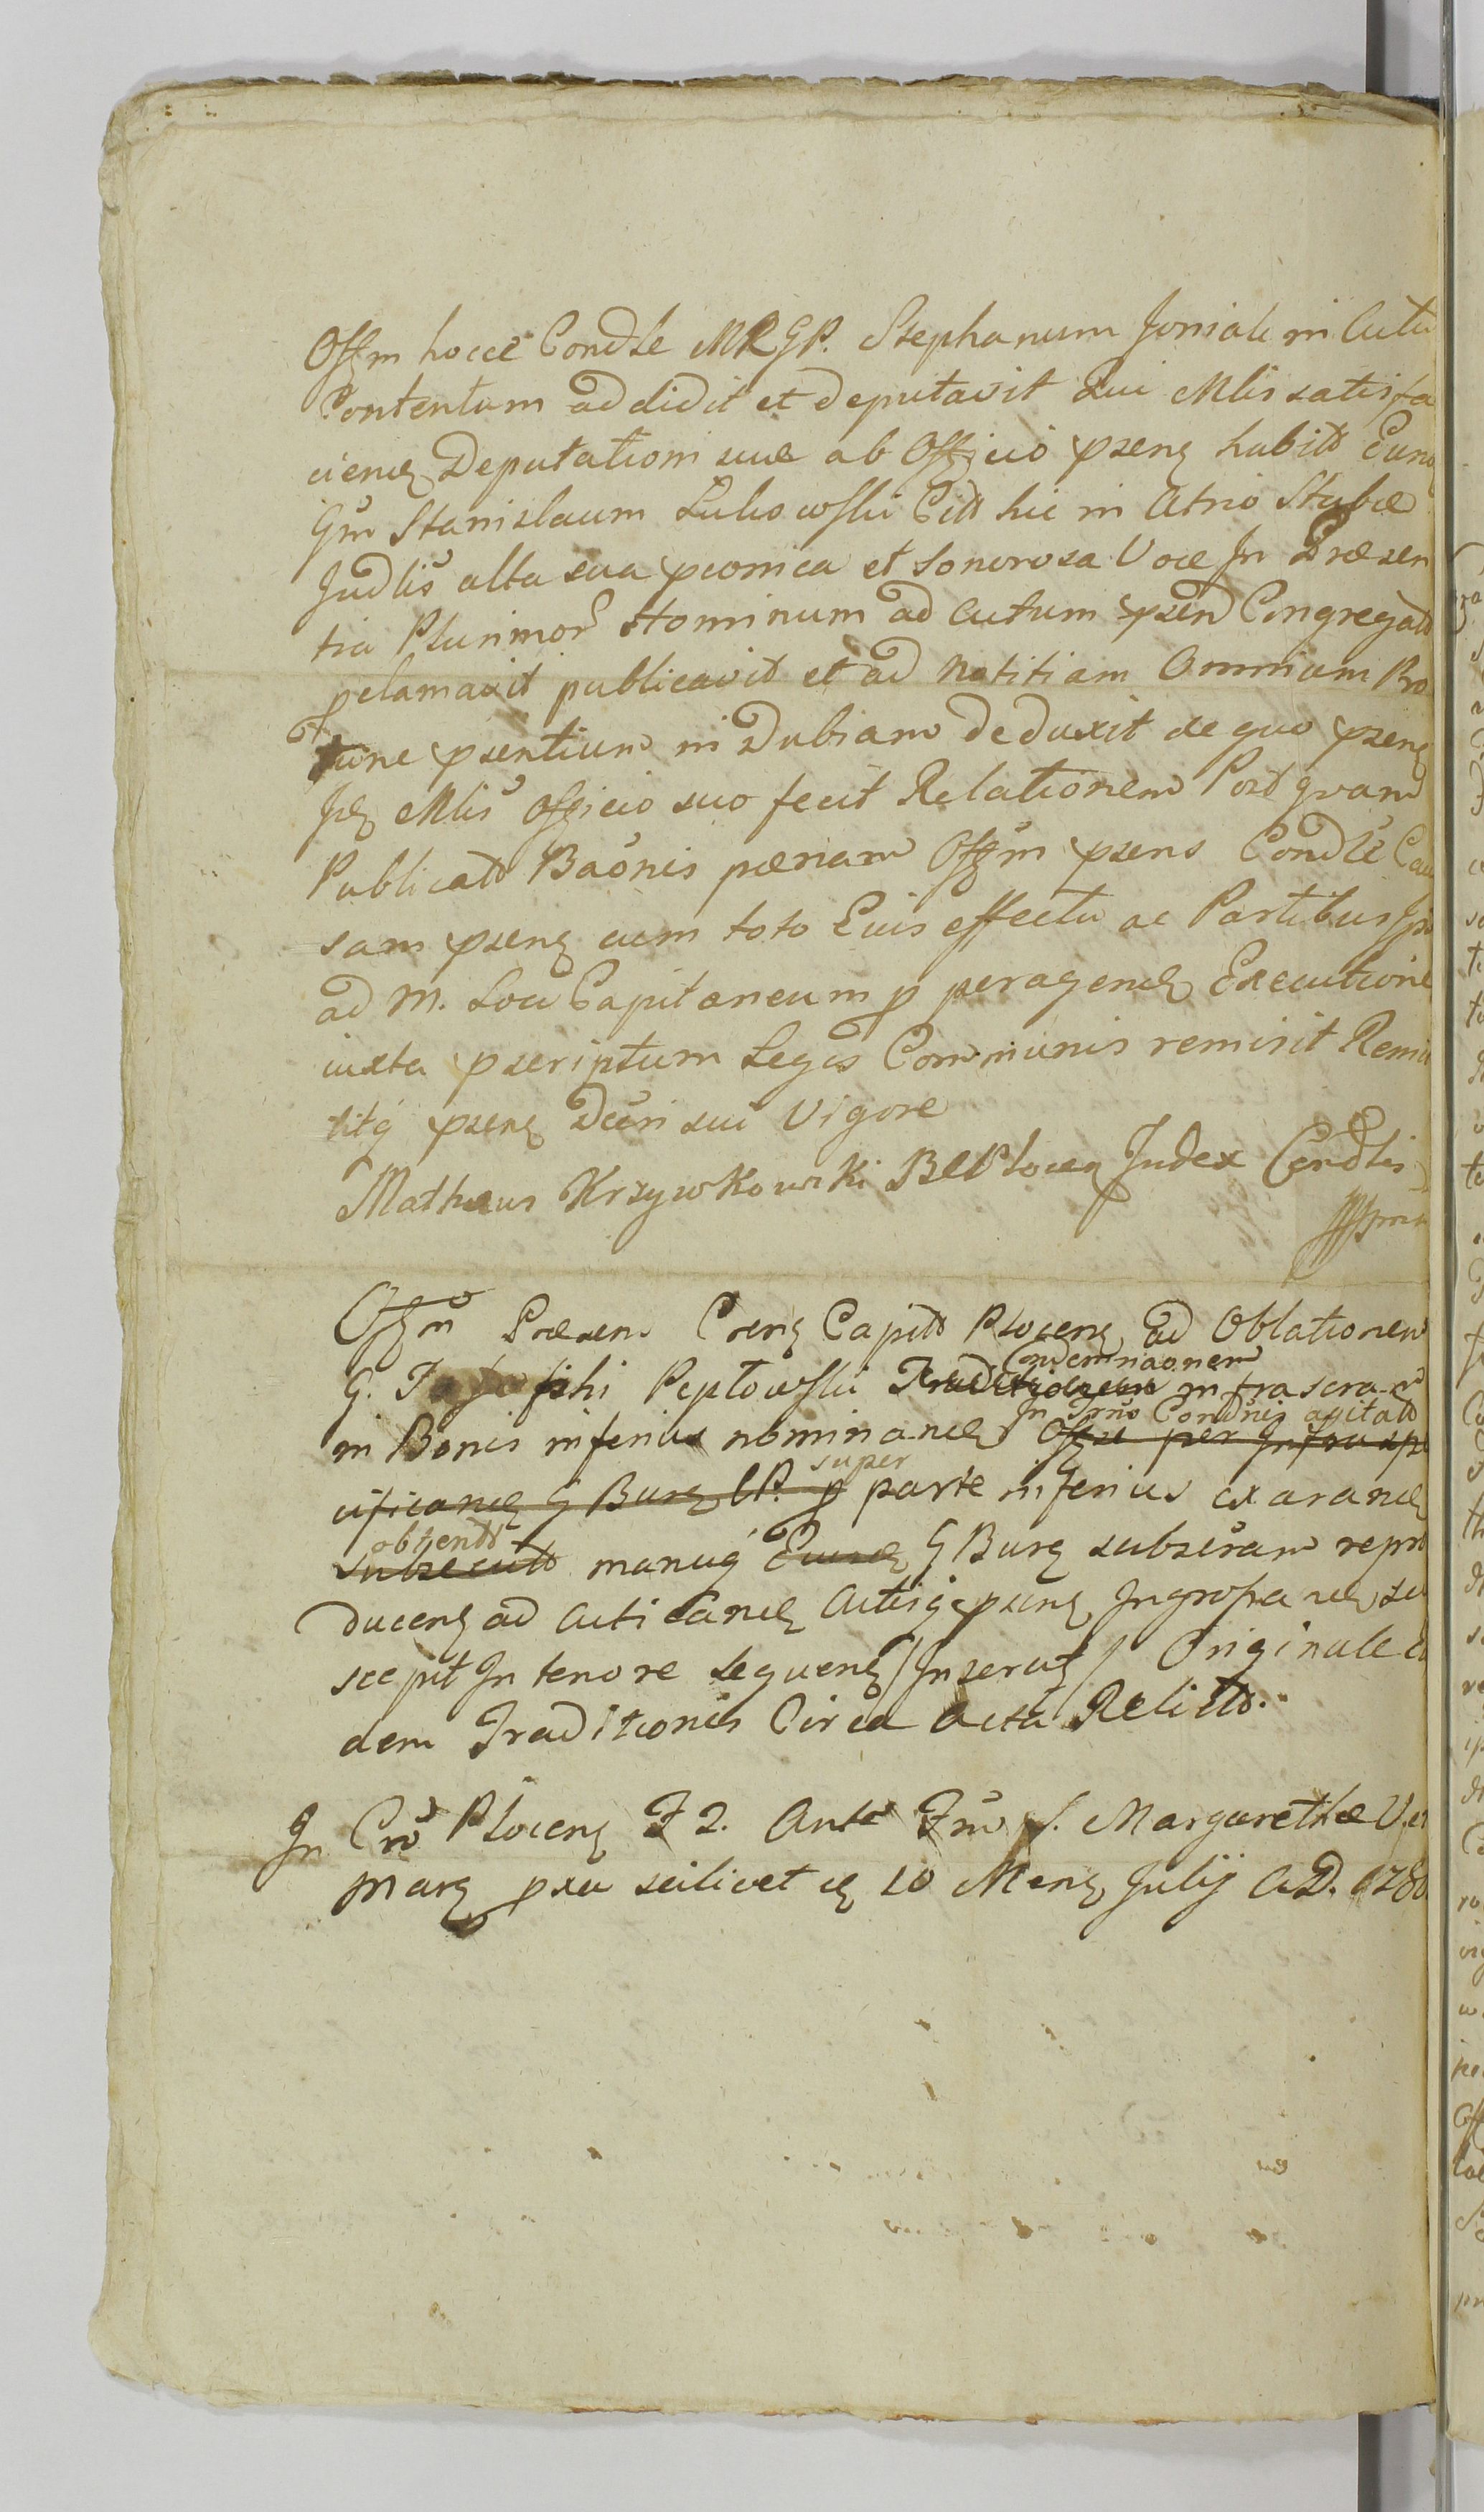 Offm hocce Condle MRGP. Stephanum Joniak in Actu
Contentum addidit et deputavit Qui Mlis satisfa
ciens Deputationi suae ab Officio psens habitt Eund
Gm Stanislaum Lukowski Citt hic in Atrio Stubae
Judlis alta sua pconica et Sonorosa Voce In Praesen
tia Plurimor Hominum ad Actum psen Congregatt
pclamavit publicavit et ad Notitiam Omnium Pro
tunc psentium in Dubiam deduxit de quo psens
Mlis Officio suo fecit Relationem Post quam
Publicatt Baonis paenam Offm psens Condle Cau
sam psens cum toto Eius effectu ac Partibus Ips
ad M. Loci Capitaneum p peragend Executione
iuxta pscriptum Legis Communis remisit Remit
titq psens Dcti sui Vigore
Mathaeus Krzywkowski BCPlocen Judex Condlis

Offm Praesens Crens Capitt Plocens ad Oblationem
G. Peptowski Condemnaonem infrascra
in Bonis inferius nominand In Trno Condnis agitatt
super parte inferius exarand
obtentt manuq G Burg subscram repro
ducens ad acticand Actisq psens Ingrossand su
scepit In tenore sequens /Inserat/ Originale
dem Traditionis Circa acta Relictt.
In Cro Plocens F 2. Ante Fm S. Margarethae V. et
Marg pxa scilicet d 10 Mens Julij A.D. 1780